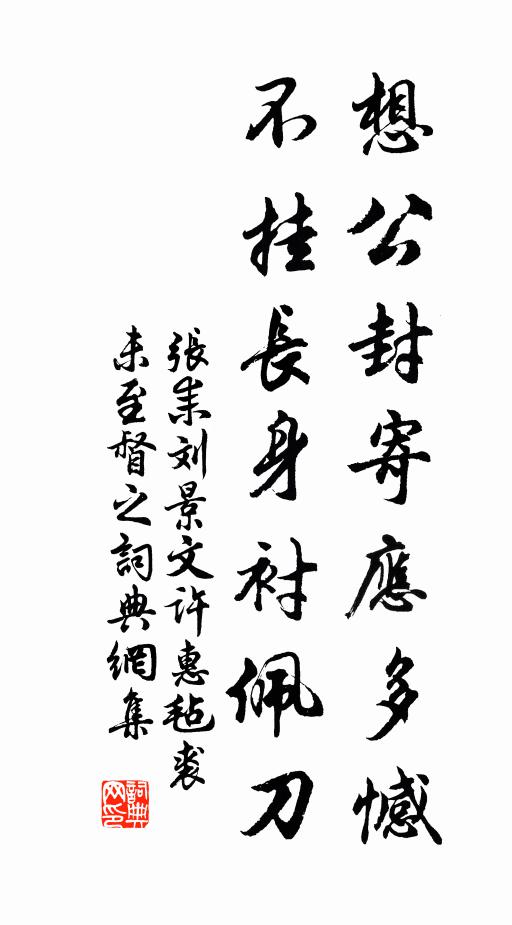 想公封寄應多憾
不挂長身衬佩刀
張耒刘景文許惠毡裘
未至督之詞典網集
詞典
网印